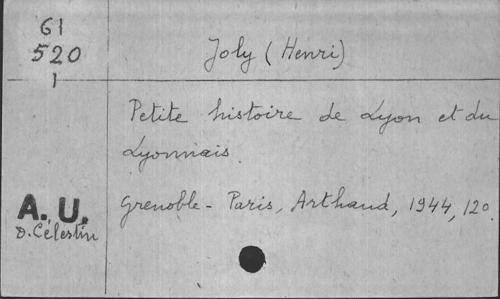 61
520
1
Joly (Henri)
Petite histoire de Lyon et du
Lyonnais.
Grenoble - Paris, Arthaud, 1944, 120.
A. U.
D. Célestin